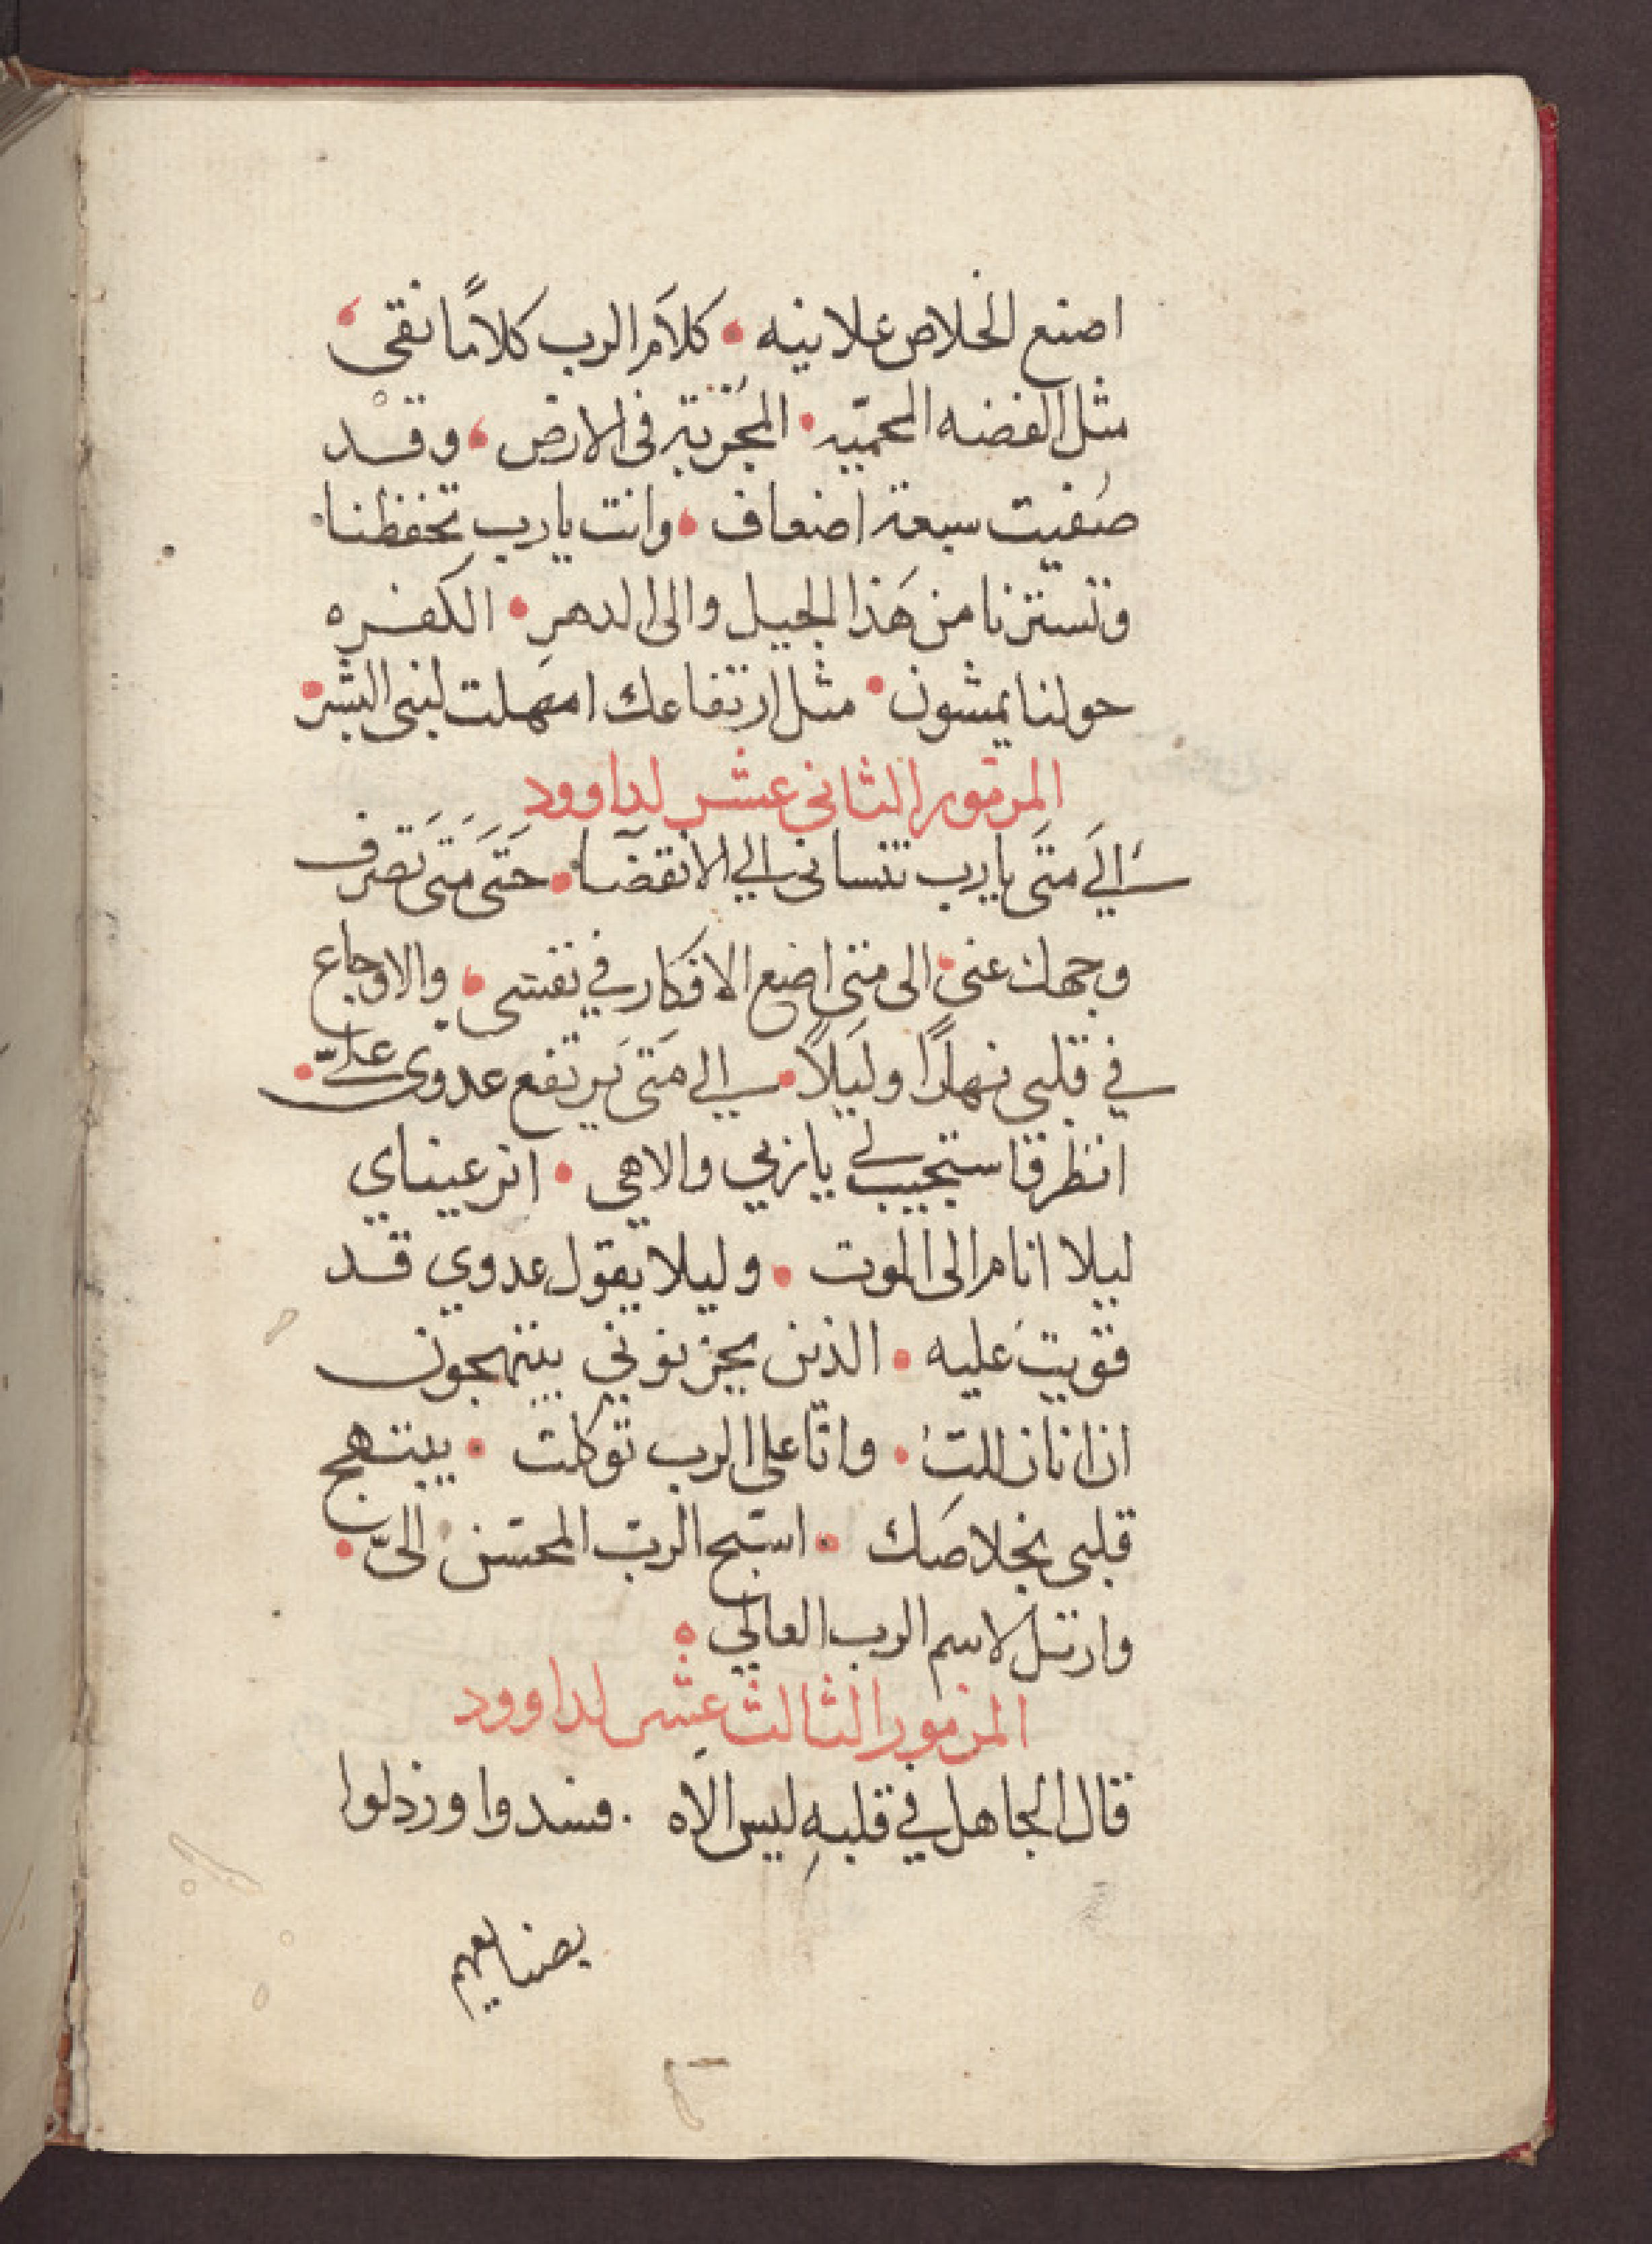 اصنع الخلاص علانيه • كلاَم الرب كلامًا نقى
مثل الفضه المحميّه • المجُرّبة فى الارض • وقد
صُفيت سبعة اضعاف • وانت يارب تحفظنا
وتسترنا من هَذا الجيل والى الدهرِ • الكفره
حولنا يمشون • مثل ارتفاعك امهَلت لبنى البشر •
المزمور الثانى عشر لداوود
اليَ متَى يارب تنسانى الي الانقضآ • حَتَى مَتىَ تَصرف
وجهك عنى • الى متى اضع الافكار في نفسى • والاوجاع
في قلبى نهارًا وليَلاً • الي مَتى يَرتفع عدوى عليّ •
انظر فاستجيب لي ياربي والاهي • انر عيناي
ليلا انام الى الموت • وليلا يقول عدوي قد
قويتَ عليه • الذين يحزنوني يبتهجون
ان انا زللت • وانا على الرب توكلت • يبتهج
قلبى بخلاصَك • اسبّح الربّ المحسّن الىّ •
وارتل لاسم الرب العالي
المزمور الثالث عشر لداوود
قال الجاهل في قلبهِ ليس الاَه . فسدوا ورذلوا
بصنايعهم